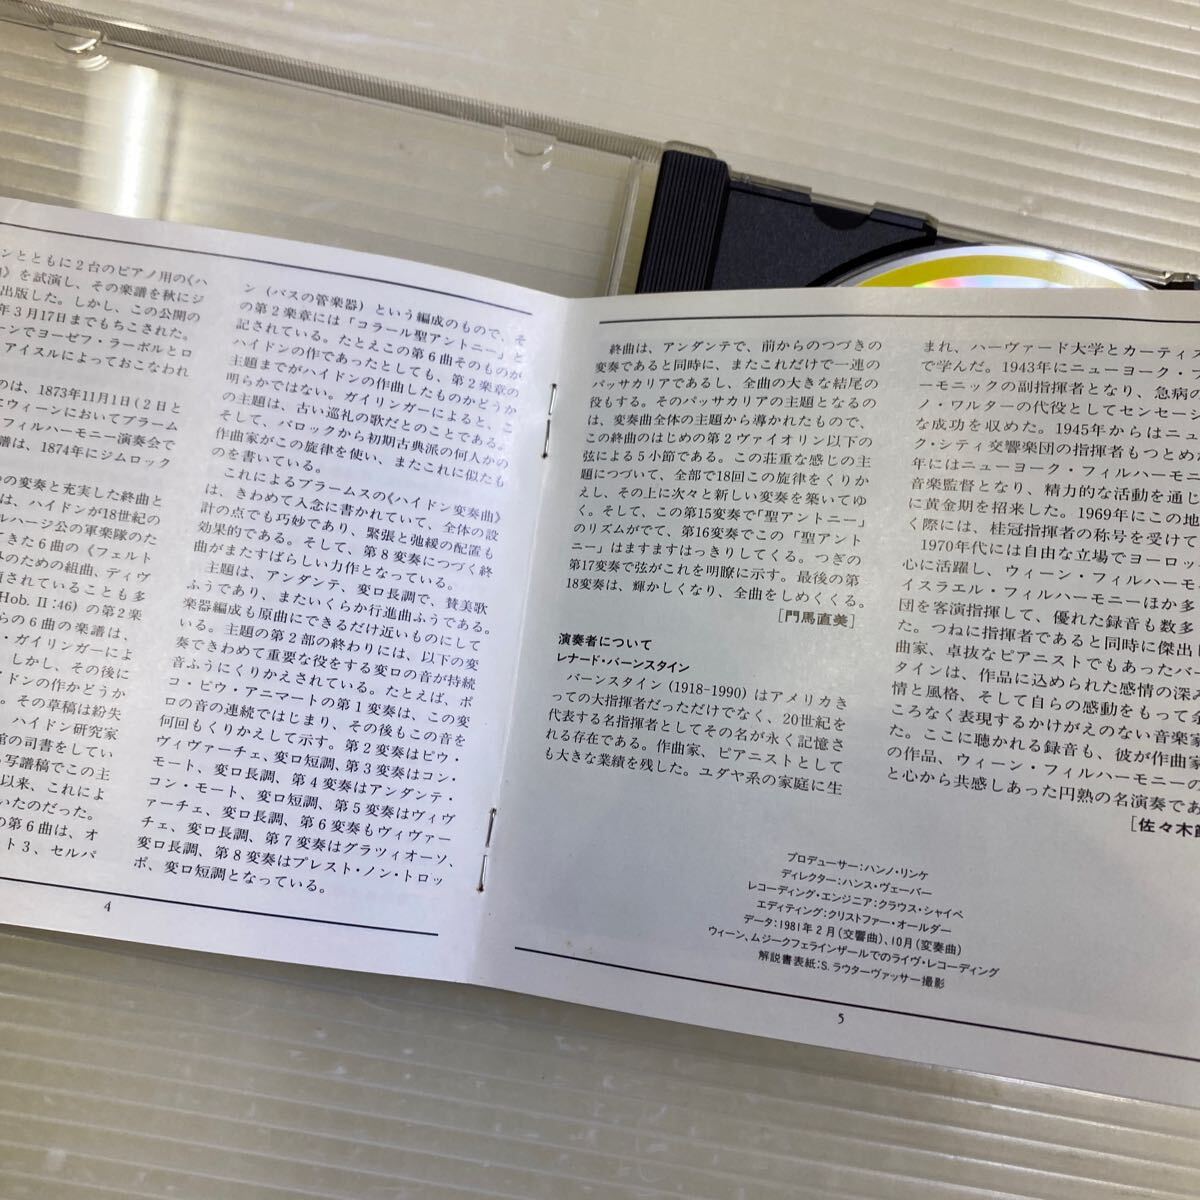 ンとともに2台のピアノ用の《ハ
》を試演し、その楽譜を秋にジ
出版した。しかし、この公開の
年3月17日までもちこされた。
ーンでヨーゼフ・ラーボルとロ
アイスルによっておこなわれ
のは、1873年11月1日(2日と
ウィーンにおいてブラーム
フィルハーモニー演奏会で
譜は、1874年にジムロック
の変奏と充実した終曲と
は、ハイドンが18世紀の
ルハージ公の軍楽隊のた
てきた6曲の《フェルト
のための組曲、ディヴ
されていることも多
Hob. II:46)の第2楽
らの6曲の楽譜は、
・ガイリンガーによ
しかし、その後に
イドンの作かどうか
。その草稿は紛失
ハイドン研究家
館の司書をしてい
写譜稿でこの主
以来、これによ
いたのだった。
の第6曲は、オ
ート3、セルパ
ン(バスの管楽器)という編成のもので、そ
の第2楽章には「コラール聖アントニー」と
記されている。たとえこの第6曲そのものが
ハイドンの作であったとしても、第2楽章の
主題までがハイドンの作曲したものかどうか
明らかではない。ガイリンガーによると、こ
の主題は、古い巡礼の歌だとのことである。
そして、バロックから初期古典派の何人かの
作曲家がこの旋律を使い、またこれに似たも
のを書いている。
これによるブラームスの《ハイドン変奏曲》
は、きわめて入念に書かれていて、全体の設
計の点でも巧妙であり、緊張と弛緩の配置も
効果的である。そして、第8変奏につづく終
曲がまたすばらしい力作となっている。
主題は、アンダンテ、変ロ長調で、賛美歌
ふうであり、またいくらか行進曲ふうである。
楽器編成も原曲にできるだけ近いものにして
いる。主題の第2部の終わりには、以下の変
奏できわめて重要な役をする変ロの音が持続
音ふうにくりかえされている。たとえば、ポ
コ・ピウ・アニマートの第1変奏は、この変
ロの音の連続ではじまり、その後もこの音を
何回もくりかえして示す。第2変奏はピウ・
ヴィヴァーチェ、変ロ短調、第3変奏はコン・
モート、変ロ長調、第4変奏はアンダンテ・
コン・モート、変ロ短調、第5変奏はヴィヴ
ァーチェ、変ロ長調、第6変奏もヴィヴァー
チェ、変ロ長調、第7変奏はグラツィオーソ、
変ロ長調、第8変奏はプレスト・ノン・トロッ
ポ、変ロ短調となっている。
4
終曲は、アンダンテで、前からのつづきの
変奏であると同時に、またこれだけで一連の
パッサカリアであるし、全曲の大きな結尾の
役もする。そのパッサカリアの主題となるの
は、変奏曲全体の主題から導かれたもので、
この終曲のはじめの第2ヴァイオリン以下の
弦による5小節である。この荘重な感じの主
題につづいて、全部で18回この旋律をくりか
えし、その上に次々と新しい変奏を築いてゆ
く。そして、この第15変奏で「聖アントニー」
のリズムがでて、第16変奏でこの「聖アント
ニー」はますますはっきりしてくる。つぎの
第17変奏で弦がこれを明瞭に示す。最後の第
18変奏は、輝かしくなり、全曲をしめくくる。
[門馬直美]
演奏者について
レナード・バーンスタイン
バーンスタイン(1918-1990)はアメリカき
っての大指揮者だっただけでなく、20世紀を
代表する名指揮者としてその名が永く記憶さ
れる存在である。作曲家、ピアニストとして
も大きな業績を残した。ユダヤ系の家庭に生
まれ、ハーヴァード大学とカーティス
で学んだ。1943年にニューヨーク・フ
ーモニックの副指揮者となり、急病の
ノ・ワルターの代役としてセンセーシ
な成功を収めた。1945年からはニュー
ク・シティ交響楽団の指揮者もつとめた
年にはニューヨーク・フィルハーモニ
音楽監督となり、精力的な活動を通じ
に黄金期を招来した。1969年にこの地
く際には、桂冠指揮者の称号を受けて
1970年代には自由な立場でヨーロッ
心に活躍し、ウィーン・フィルハーモ
イスラエル・フィルハーモニーほか多
団を客演指揮して、優れた録音も数多
た。つねに指揮者であると同時に傑出し
曲家、卓抜なピアニストでもあったバー
タインは、作品に込められた感情の深み
情と風格、そして自らの感動をもって余
ころなく表現するかけがえのない音楽家
た。ここに聴かれる録音も、彼が作曲家
の作品、ウィーン・フィルハーモニーの
と心から共感しあった円熟の名演奏であ
[佐々木
プロデューサー:ハンノ・リンケ
ディレクター:ハンス・ヴェーバー
レコーディング・エンジニア:クラウス・シャイベ
エディティング:クリストファー・オールダー
データ:1981年2月(交響曲)、10月(変奏曲)
ウィーン、ムジークフェラインザールでのライヴ・レコーディング
解説書表紙:S.ラウターヴァッサー撮影
5